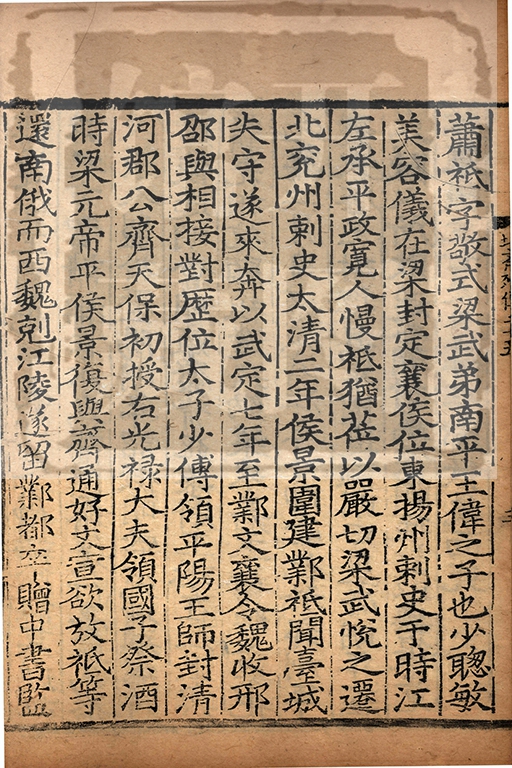 蕭祗字敬式梁武弟南平王偉之子也少聰敏
美容儀在梁封定襄侯位東揚州刺史于時江
左承平政寛人慢祗猶莅以嚴切梁武悅之遷
北兖州刺史太清二年侯景圍建鄴祗聞臺城
失守遂來奔以武定七年至鄴文襄令魏收邢
邵與相接對歷位太子少傅領平陽王師封清
河郡公齊天保初授右光禄大夫領國子祭酒
時梁元帝平侯景復與齊通好文宣欲放祗等
還南俄而西魏剋江陵遂留鄴都卒贈中書監